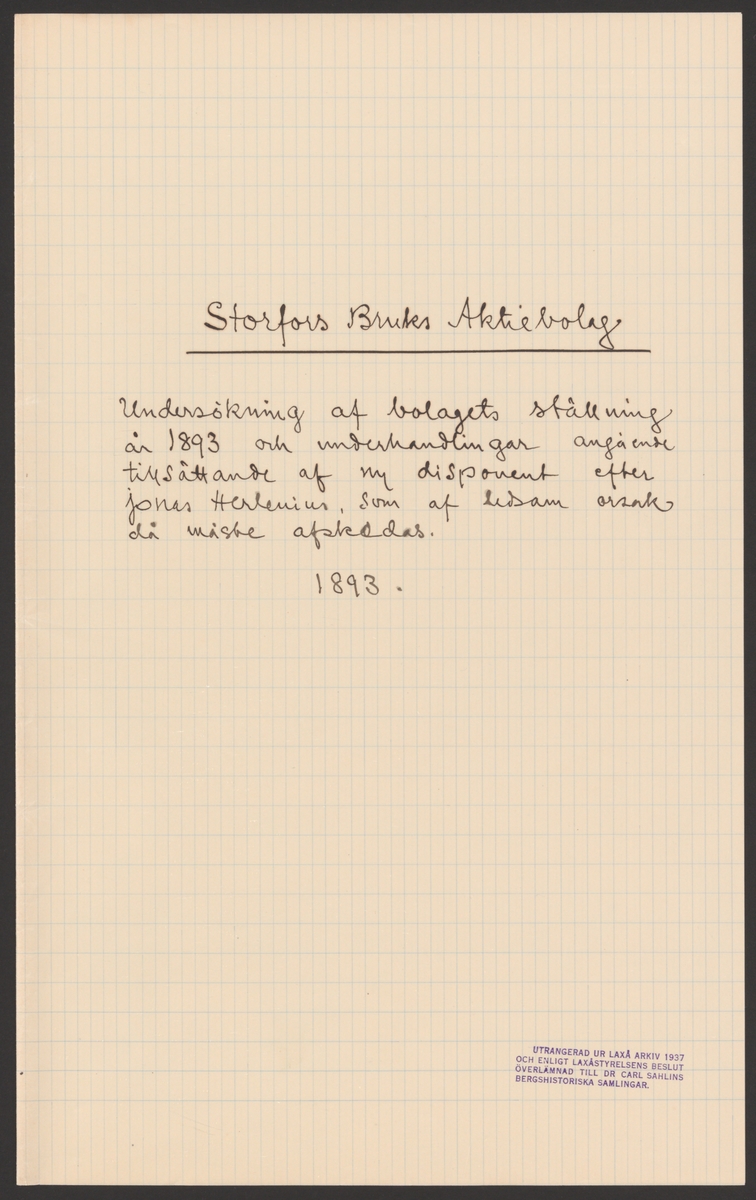 Storfors Bruks Aktiebolag
Undersökning af bolagets ställning
år 1893 och underhandlingar angående
tillsättande af ny disponent efter
Jonas Herlenius, som af ledsam orsak
då måste afskedas.
1893.
UTRANGERAD UR LAXÅ ARKIV 1937
OCH ENLIGT LAXÅSTYRELSENS BESLUT
ÖVERLÄMNAD TILL DR CARL SAHLINS
BERGSHISTORISKA SAMLINGAR.